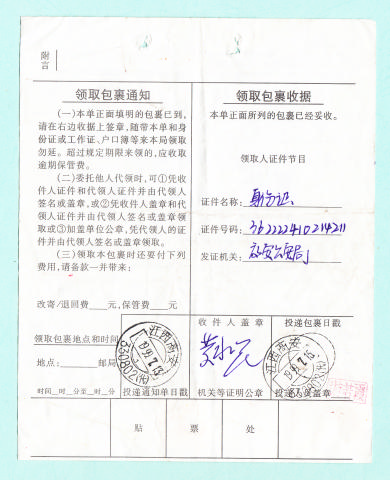 附
言
领取包裹通知
(一)本单正面填明的包裹已到,
请在右边收据上签章,随带本单和身
份证或工作证、户口簿等来本局领取
勿延。超过规定期限来领的,应收取
逾期保管费。
(二)委托他人代领时,可①凭收
件人证件和代领人证件并由代领人
签名或盖章,或②凭收件人盖章和代
领人证件并由代领人签名或盖章领
取或③加盖单位公章,凭代领人的证
件并由代领人签名或盖章领取。
(三)领取本包裹时还要付下列
费用,请备款一并带来:
改寄/退回费 元,保管费 元
领取包裹地点和时间
地点: 邮局
时间一时一分至一时一分
领取包裹收据
本单正面所列的包裹已经妥收。
领取人证件节目
证件名称: 身份证
证件号码: 362222410214211
发证机关: 高安公安局
收件人盖章
投递包裹日戳
江西高安
江西高安
投递通知单日戳
机关等证明公章
投递人员盖章
贴 票 处